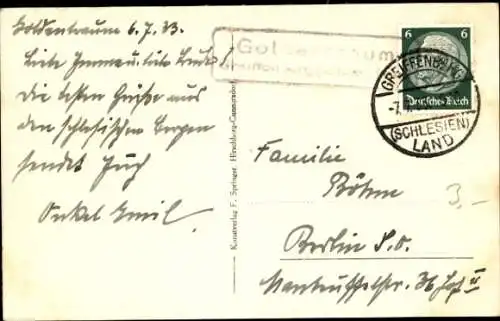 Goldentraum 6.7.33.
Liebe Irma u. liebe Bude!
Die besten Grüße aus
den schlesischen Bergen
sendet Euch
Onkel Emil.
Kunstverlag F. Springer, Hirschberg-Cunnersdorf
Goldentraum
6 6
Deutsches Reich
GREIFFENBERG
-7.
(SCHLESIEN)
LAND
Familie
Böhm
Berlin S.O.
Manteuffelstr. 36 Hof II
3,-